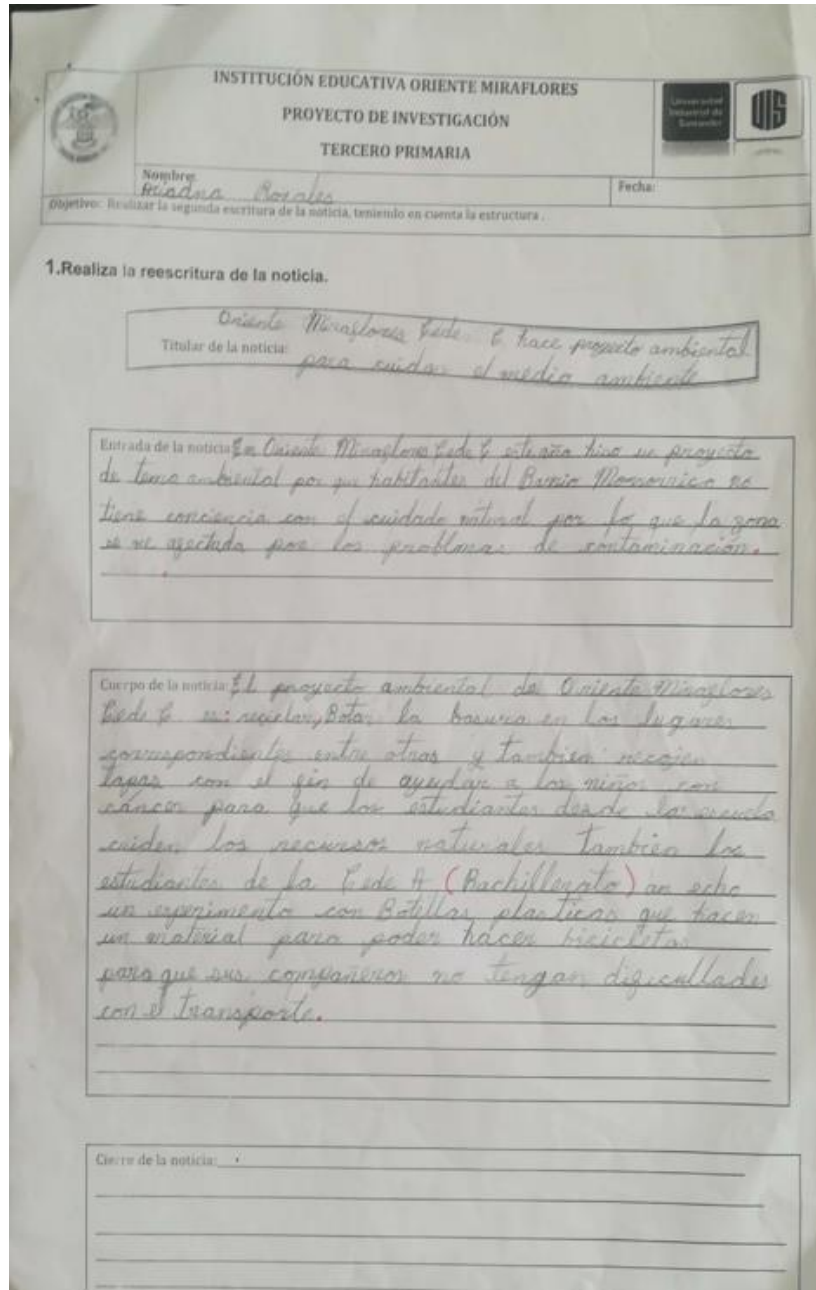 INSTITUCIÓN EDUCATIVA ORIENTE MIRAFLORES
PROYECTO DE INVESTIGACIÓN
TERCERO PRIMARIA
Universidad
Industrial de
Santander
UIS
Nombre:
Ariadna Rosales
Fecha:
Objetivo: Realizar la segunda escritura de la noticia, teniendo en cuenta la estructura .
1.Realiza la reescritura de la noticia.
Oriente Miraflores Cede C hace proyecto ambiental
Titular de la noticia:
para cuidar el medio ambiente
Entrada de la noticia En Oriente Miraflores Cede C este año hiso un proyecto
de tema ambiental por que habitantes del Barrio Monserrico no
tiene conciencia con el cuidado natural por lo que la zona
se ve afectada por los problemas de contaminación.
Cuerpo de la noticia: El proyecto ambiental de Oriente Miraflores
Cede C es: reciclar, Botar la basura en los lugares
correspondientes entre otras y tambien recojen
tapas con el fin de ayudar a los niños con
cáncer para que los estudiantes desde la escuela
cuiden los recursos naturales también los
estudiantes de la Cede A (Bachillerato) an echo
un experimento con Botellas plasticas que hacen
un material para poder hacer bicicletas
para que sus compañeros no tengan dificultades
con el transporte.
Cierre de la noticia: